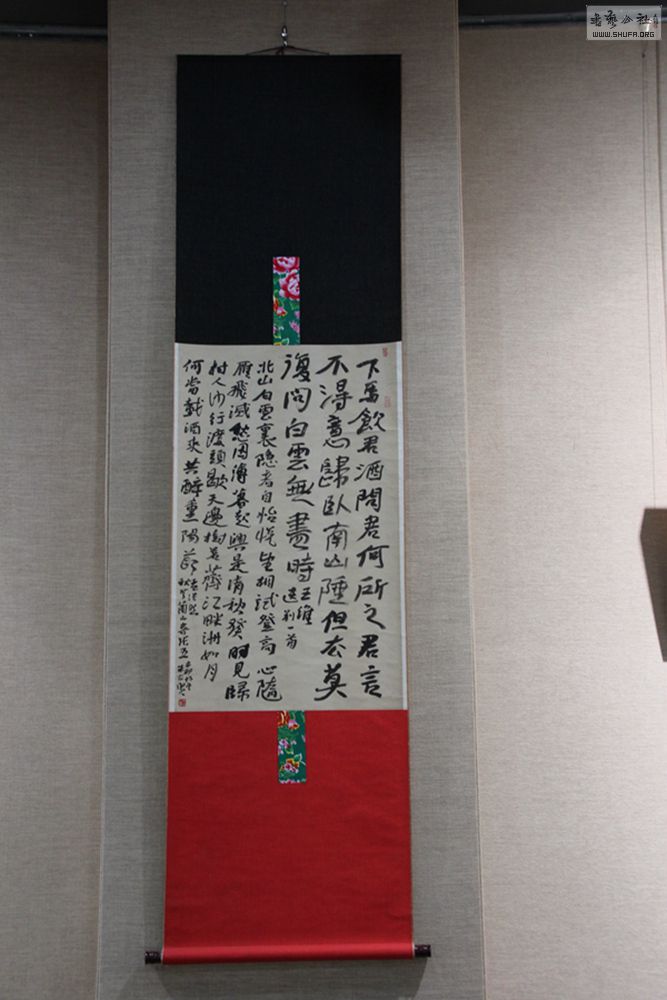 書藝公社
WWW.SHUFA.ORG
下馬飲君酒問君何所之君言
不得意歸臥南山陲但去莫
復問白雲無盡時
王維
送别一首
北山白雲裏隐者自怡悅望相試登高心隨
雁飛滅愁因薄暮起興是清秋發時見歸
村人沙行渡頭歇天邊樹若薺江畔洲如月
何當載酒來共醉重陽節
孟浩然
秋登蘭山寄張五